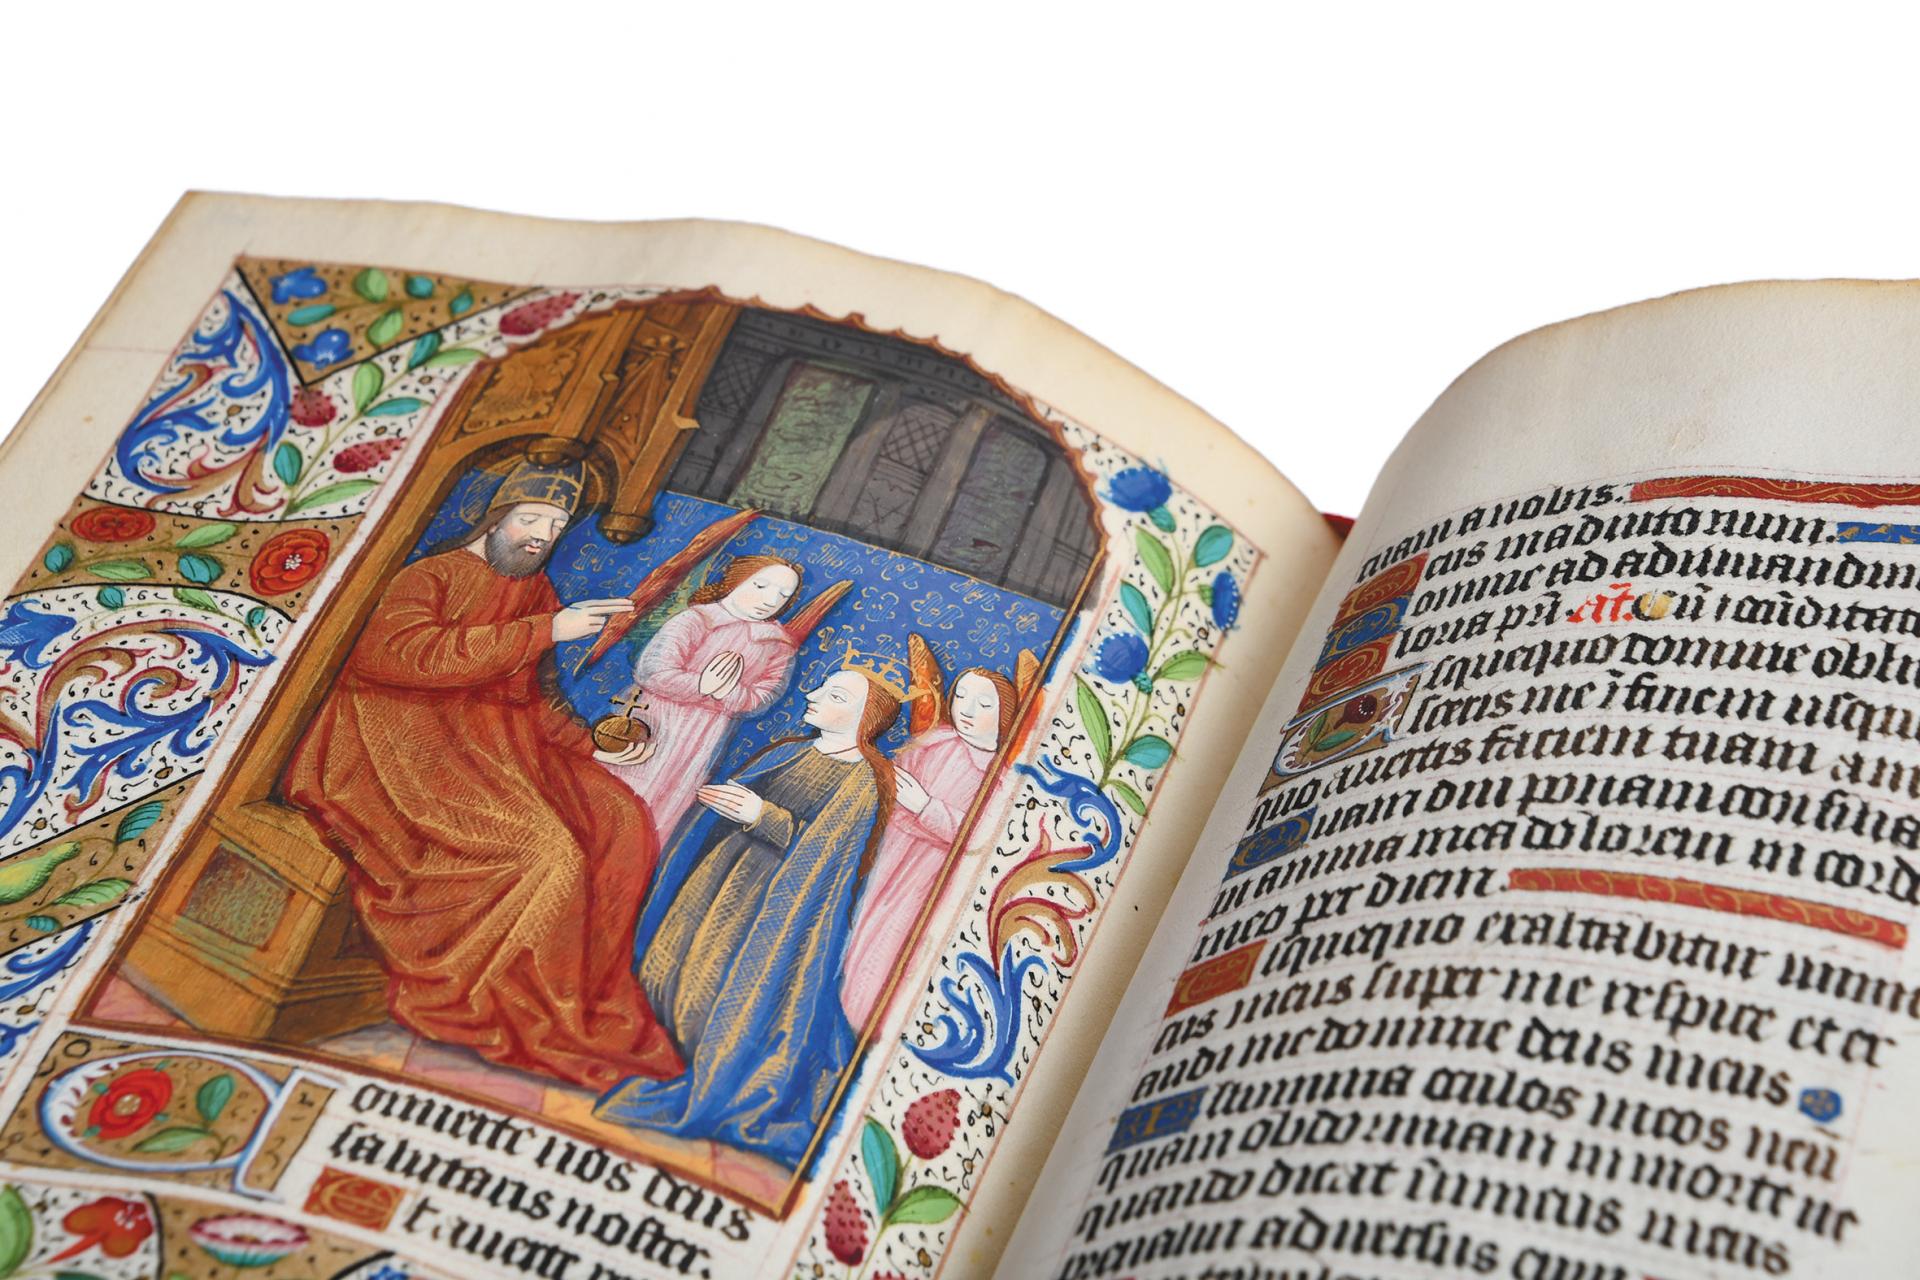 Conuerte nos deus
salutaris noster.
Et auerte
tuam a nobis.
Deus in adiutorium.
Domine ad adiuuandum
Gloria pr̃i añ. Cũ iocũditat
Usquequo domine obli
uisceris me ĩ finem usque
quo auertis faciem tuam a me
Quam diu ponam consilia
in anima mea dolorem in corde
meo per diem.
Usquequo exaltabitur inimi
cus meus super me respice et ex
audi me domine deus meus
Illumina oculos meos neu
quam obdormiam in morte ne
quando dicat inimicus meus
preualui aduersus eum